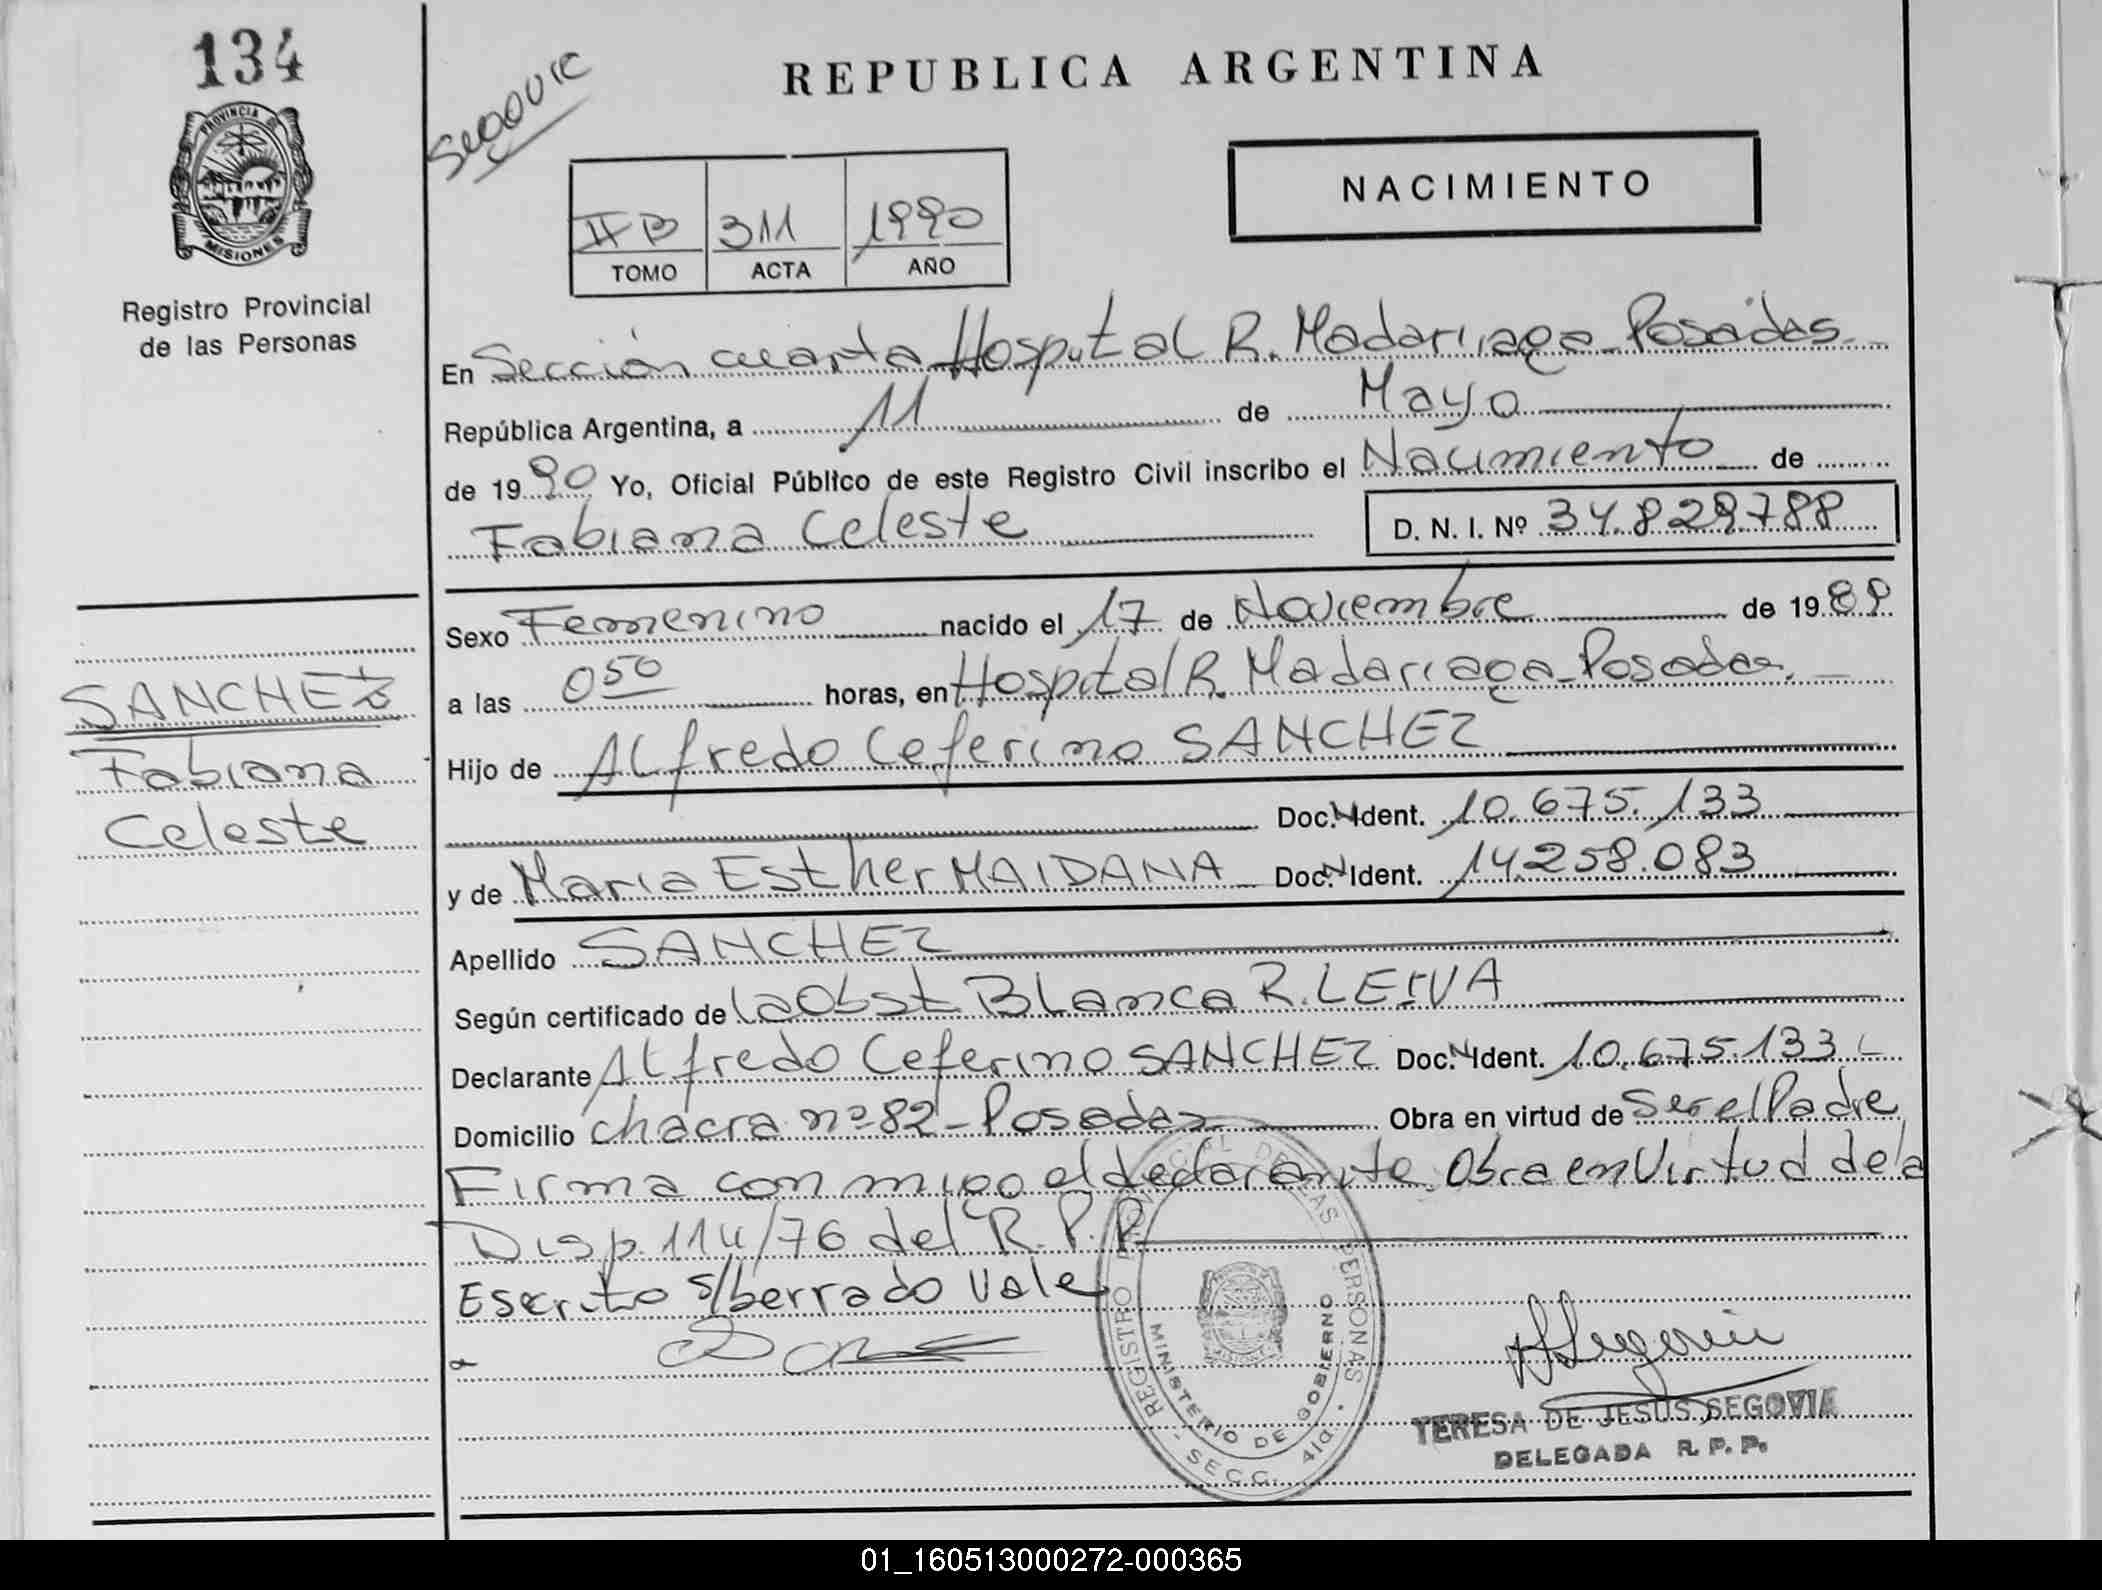 134
PROVINCIA DE
MISIONES
Registro Provincial
de las Personas
REPUBLICA ARGENTINA
NACIMIENTO
II B 311 1990
TOMO ACTA AÑO
En Sección cuarta Hospital R. Madariaga - Posadas.
República Argentina, a 11 de Mayo
de 1990 Yo, Oficial Público de este Registro Civil inscribo el Nacimiento de
Fabiana Celeste D. N. I. Nº 34.829788
Sexo Femenino nacido el 17 de Noviembre de 1989
a las 0 50 horas, en Hospital R. Madariaga - Posadas.
Hijo de Alfredo Ceferino SANCHEZ
Doc. N. Ident. 10.675.133
y de Maria Esther MAIDANA Doc. N. Ident. 14.258.083
Apellido SANCHEZ
Según certificado de la Obst. Blanca R. LEIVA
Declarante Alfredo Ceferino SANCHEZ Doc. N. Ident. 10.675.133
Domicilio chacra nº 82 - Posadas Obra en virtud de Ser el Padre
Firma con migo el declarante. Obra en Virtud de la
Disp. 114/76 del R. P. P.
Escrito s/berrado Vale
SANCHEZ
Fabiana
Celeste
REGISTRO PROVINCIAL DE LAS PERSONAS
MINISTERIO DE GOBIERNO
SECC. 4ta.
TERESA DE JESUS SEGOVIA
DELEGADA R. P. P.
01_160513000272-000365